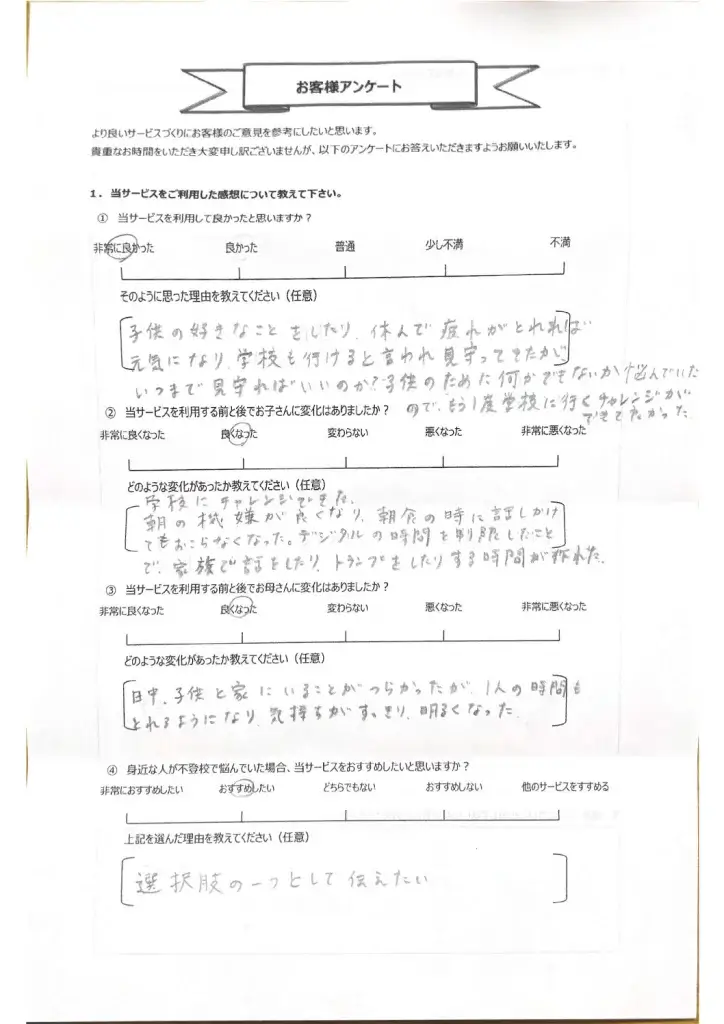 お客様アンケート
より良いサービスづくりにお客様のご意見を参考にしたいと思います。
貴重なお時間をいただき大変申し訳ございませんが、以下のアンケートにお答えいただきますようお願いいたします。
1．当サービスをご利用した感想について教えて下さい。
① 当サービスを利用して良かったと思いますか？
非常に良かった 良かった 普通 少し不満 不満
そのように思った理由を教えてください（任意）
子供の好きなことをしたり、休んで疲れがとれれば
元気になり、学校も行けると言われ見守ってきたが、
いつまで見守ればいいのか？子供のために何かできないか悩んでいた
ので、もう1度学校に行くチャレンジが
できて良かった。
② 当サービスを利用する前と後でお子さんに変化はありましたか？
非常に良くなった 良くなった 変わらない 悪くなった 非常に悪くなった
どのような変化があったか教えてください（任意）
学校にチャレンジできた。
朝の機嫌が良くなり、朝食の時に話しかけ
てもおこらなくなった。デジタルの時間を制限したこと
で、家族で話をしたり、トランプをしたりする時間が取れた。
③ 当サービスを利用する前と後でお母さんに変化はありましたか？
非常に良くなった 良くなった 変わらない 悪くなった 非常に悪くなった
どのような変化があったか教えてください（任意）
日中、子供と家にいることがつらかったが、1人の時間も
とれるようになり、気持ちがすっきり、明るくなった。
④ 身近な人が不登校で悩んでいた場合、当サービスをおすすめしたいと思いますか？
非常におすすめしたい おすすめしたい どちらでもない おすすめしない 他のサービスをすすめる
上記を選んだ理由を教えてください（任意）
選択肢の一つとして伝えたい